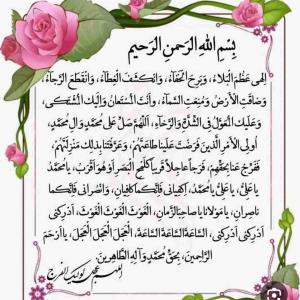 بِسْمِ اللهِ الرَحمنِ الرَحیمِ
اِلٰهی عَظُمَ الْبَلاءُ، وَبَرِحَ الْخَفاءُ، وَانْکَشَفَ الْغِطاءُ، وَانْقَطَعَ الرَّجاءُ،
وَضاقَتِ الْاَرْضُ، وَمُنِعَتِ السَّماءُ، وَاَنْتَ الْمُسْتَعانُ وَاِلَیْكَ الْمُشْتَکی،
وَعَلَیْكَ الْمُعَوَّلُ فِی الشِّدَّةِ وَالرَّخاءِ، اَللّٰهُمَّ صَلِّ عَلی مُحَمَّدٍ وَآلِ مُحَمَّدٍ،
اُولِی الْاَمْرِ الَّذینَ فَرَضْتَ عَلَیْنا طاعَتَهُمْ، وَعَرَّفْتَنا بِذلِكَ مَنْزِلَتَهُمْ،
فَفَرِّجْ عَنّا بِحَقِّهِمْ، فَرَجاً عاجِلاً قَریباً کَلَمْحِ الْبَصَرِ اَوْ هُوَ اَقْرَبُ، یا مُحَمَّدُ
یا عَلِیُّ، یا عَلِیُّ یا مُحَمَّدُ، اِکْفِیانی فَاِنَّکُما کافِیانِ، وَانْصُرانی فَاِنَّکُما
ناصِرانِ، یا مَوْلانا یا صاحِبَ الزَّمانِ، الْغَوْثَ الْغَوْثَ الْغَوْثَ، اَدْرِکْنی
اَدْرِکْنی اَدْرِکْنی، السّاعَةَ السّاعَةَ السّاعَةَ، الْعَجَلَ الْعَجَلَ الْعَجَلَ، یا اَرْحَمَ
الرّاحِمینَ، بِحَقِّ مُحَمَّدٍ وَآلِهِ الطّاهِرینَ.
اللهم عجل لولیک الفرج